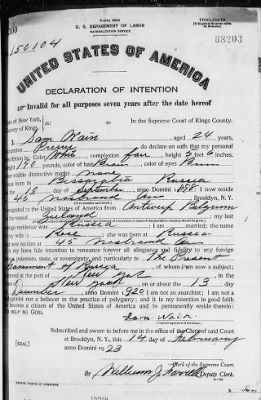 U. S. DEPARTMENT OF LABOR
NATURALIZATION SERVICE
TRIPLICATE
150104
68203
UNITED STATES OF AMERICA
DECLARATION OF INTENTION
Invalid for all purposes seven years after the date hereof
State of New York,
County of Kings,
In the Supreme Court of Kings County.
I, Sam Wain, aged 24 years,
occupation Presser, do declare on oath that my personal
description is: Color White, complexion fair, height 5 feet inches,
weight 140 pounds, color of hair, color of eyes
other visible distinctive marks none
I was born in Bessarabia Russia
on the 10 day of September, anno Domini 1898; I now reside
at 45 Nostrand Ave Brooklyn, N. Y.
I emigrated to the United States of America from Antwerp Belgium
on the vessel Zeeland; my last
foreign residence was Russia; I am married; the name
of my wife is Rose; she was born at Russia
and now resides at 45 Nostrand Ave
It is my bona fide intention to renounce forever all allegiance and fidelity to any foreign
prince, potentate, state, or sovereignty, and particularly to The Present
Government of Russia, of whom I am now a subject;
I arrived at the port of New York, in the
State of New York, on or about the 13 day
of December, anno Domini 1920; I am not an anarchist; I am not a
polygamist nor a believer in the practice of polygamy; and it is my intention in good faith
to become a citizen of the United States of America and to permanently reside therein:
SO HELP ME GOD.
Sam Wain
Subscribed and sworn to before me in the office of the Clerk of said Court
at Brooklyn, N. Y., this 14 day of
anno Domini 1923
Clerk of the Supreme Court.
By William J. Deputy Clerk.